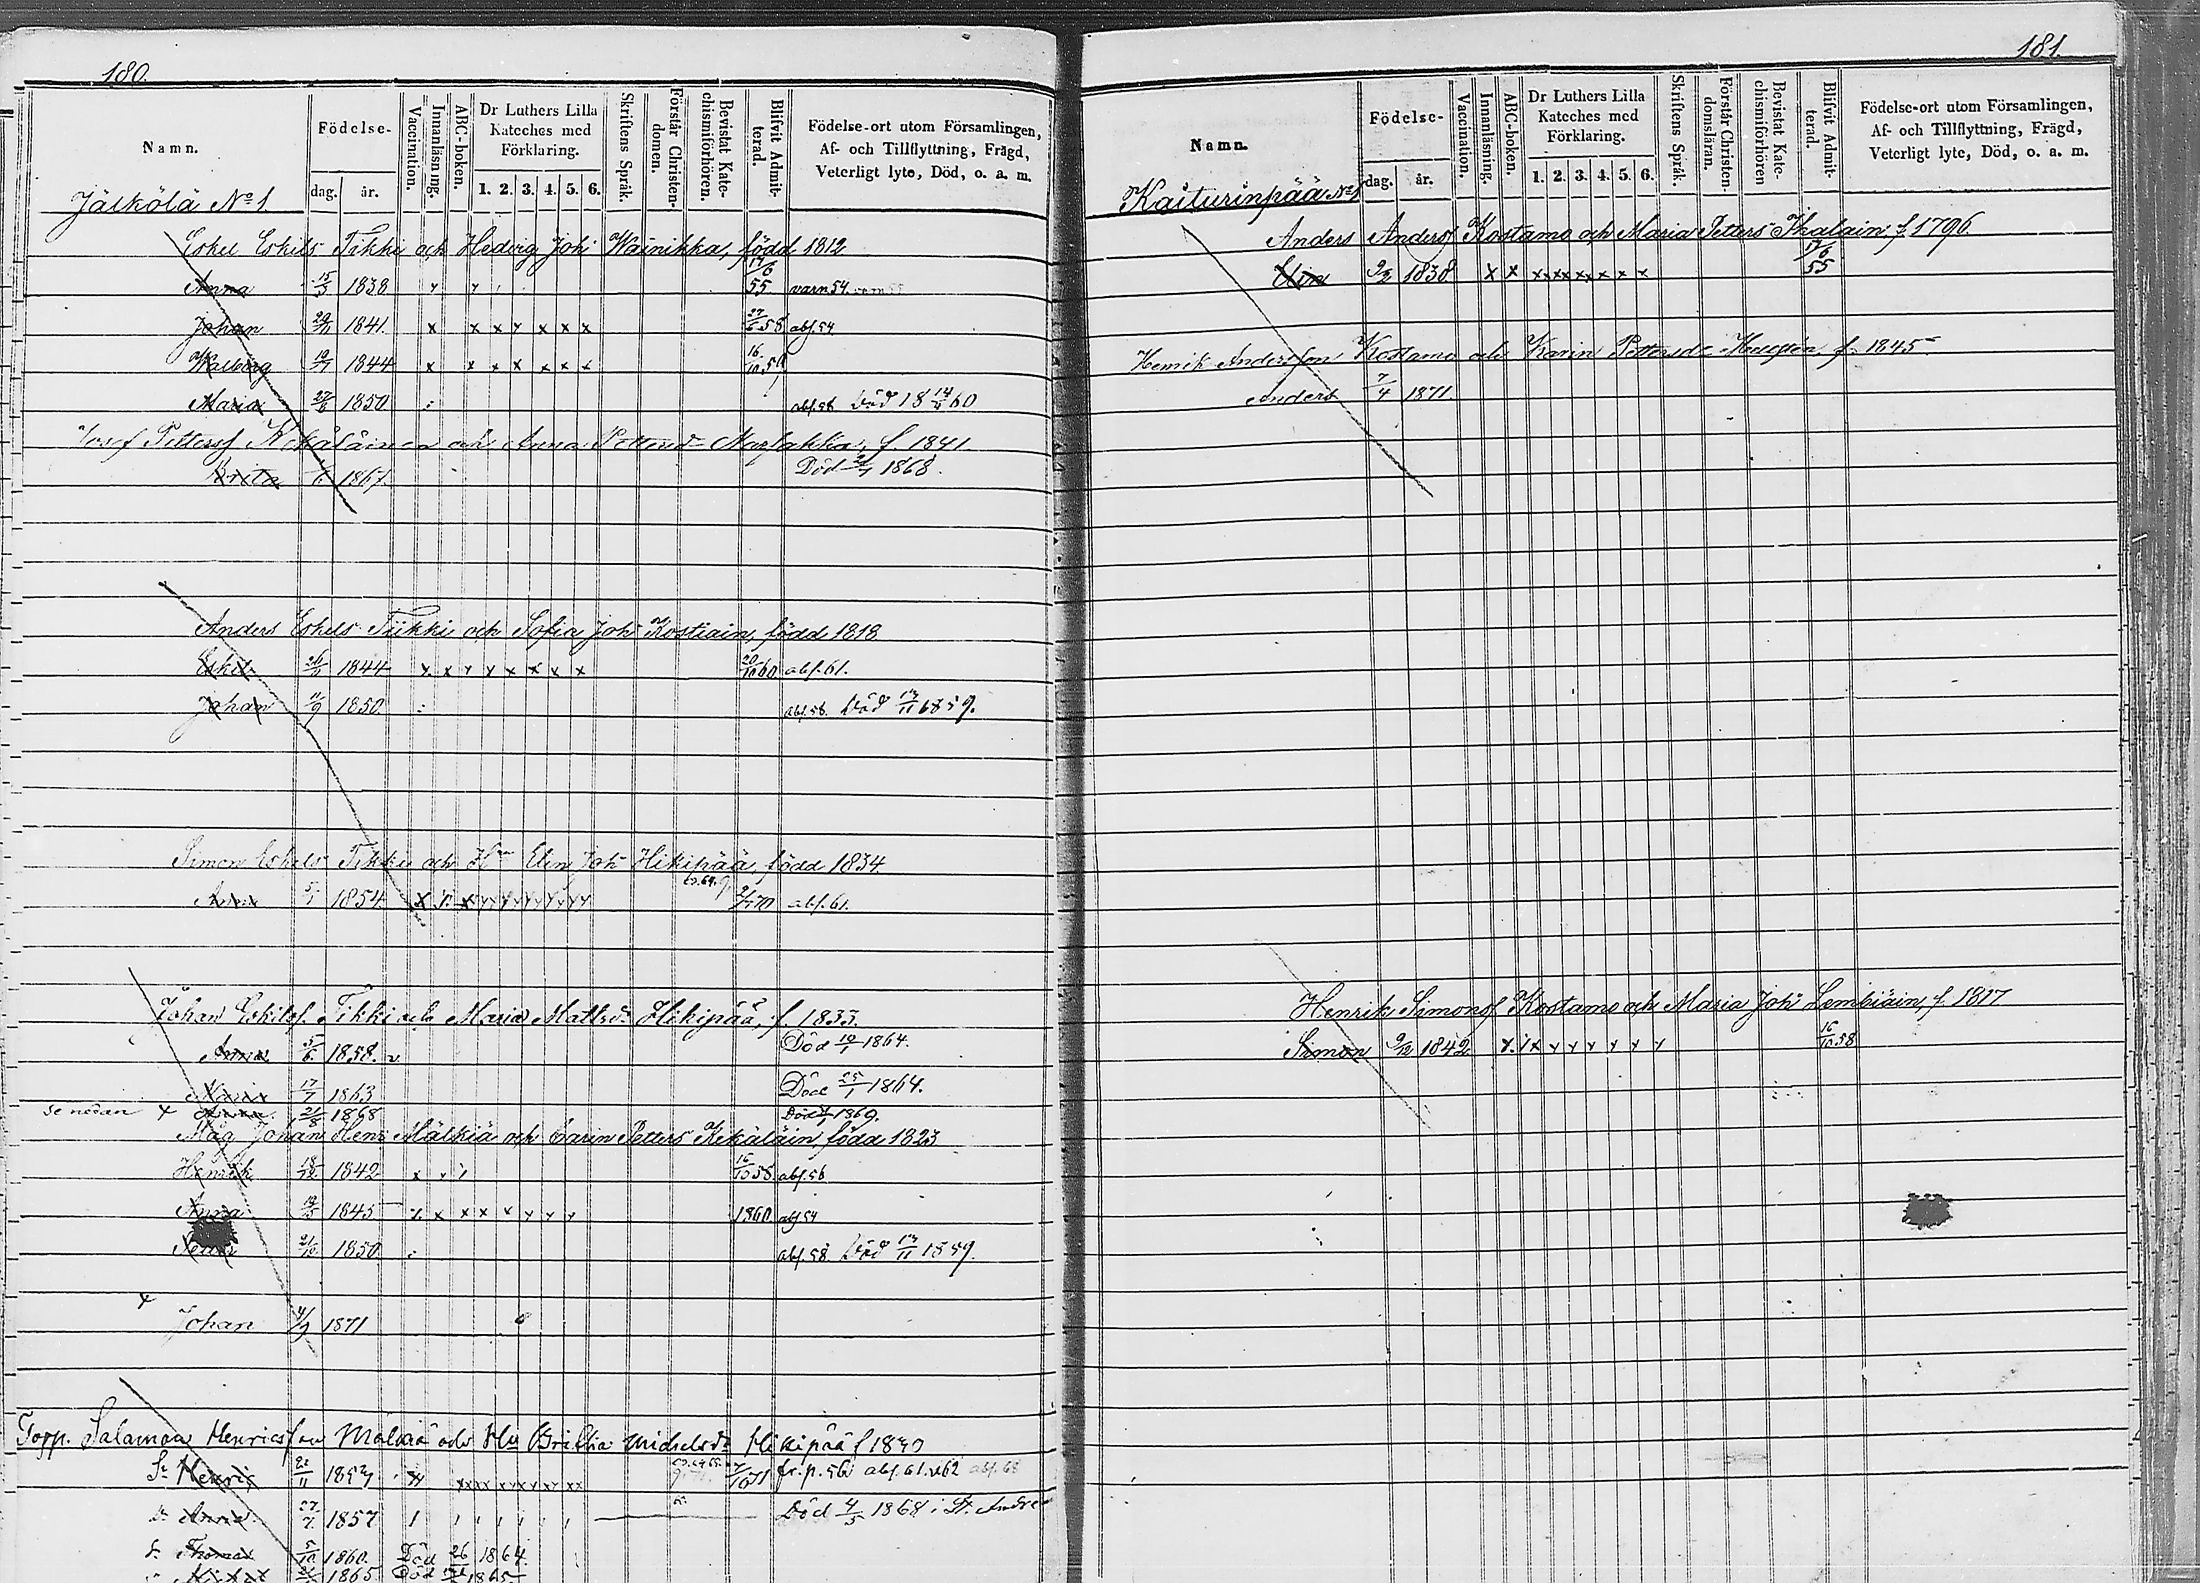 180.
Namn.
Födelse-
dag.
år.
Vaccination.
Innanläsning.
ABC-boken.
Dr Luthers Lilla
Kateches med
Förklaring.
1. 2. 3. 4. 5. 6.
Skriftens Språk.
Förstår Christen-
domen.
Bevistat Kate-
chismiförhören.
Blifvit Admit-
terad.
Födelse-ort utom Församlingen,
Af- och Tillflyttning, Frägd,
Veterligt lyte, Död, o. a. m.
Jäykölä No 1.
Eskel Eskels Tikki och Hedvig Joh Wainikka, född 1812
Anna 15/3 1838 17/6 55. varn 54.
Johan 1841. x x x x x x x 27/6 58 abs. 54
Walborg 19/7 1844 x x x x x x x 16/10 59
Maria 27/8 1850 abs. 58 Död 18 60
Josef Petterss Kekäläinen och Anna Pettersd f. 1841.
Krita 1867. Död 1868.
Anders Eskels Tikki och Sofia Joh Kostiain, född 1818
Eskel 1844 x x x x x x x x 20/10 60 abs. 61.
Johan 11/9 1850. abs. 58. Död 13/11 1859.
Simon Eskels Tikki och Hu Elin Joh Hikipää, född 1834.
1854 70 abs. 61.
Johan Eskilss. Tikki och Maria Mattsd. Hikipää, f. 1833.
Anna 5/6 1858. Död 10/1 1864.
17/7 1863 Död 25/1 1864.
se nedan x 21/8 1868 Död 1869.
Måg Johan Hens Mälkiä och Carin Petters Kekäläin, född 1823
Henrik 18/12 1842 16/10 58. abs. 56
Anna 1845 1860 abs 54
Petter 21/10 1850 abs. 58 Död 13/11 1859.
x
Johan 4/9 1871
Torp. Salamon Henricsson Mälkiä och Hu Britha Michelsd. Hikipää f 1830
Sr Henric 22/11 7/10 71 fr. p. 56 abs. 61. 62 abs. 68
Dr Anna 27/7 1857 Död 4/5 1868 i St. Andre
Sr Thomas 5/10 1860. Död 26 1864.
1865 Död 1865
181.
Namn.
Födelse-
dag.
år.
Vaccination.
Innanläsning.
ABC-boken.
Dr Luthers Lilla
Kateches med
Förklaring.
1. 2. 3. 4. 5. 6.
Skriftens Språk.
Förstår Christen-
domsläran.
Bevistat Kate-
chismiförhören
Blifvit Admit-
terad.
Födelse-ort utom Församlingen,
Af- och Tillflyttning, Frägd,
Veterligt lyte, Död, o. a. m.
Kaiturinpää No 1
Anders Anderss Kostamo och Maria Petters Ikalain f. 1796
Elin 9/2 1838. 17/6 55
Henrik Andersson Kostamo och Karin Pettersd. f. 1845
Anders 7/4 1871
Henrik Simonss Kostamo och Maria Joh Lembiäin, f. 1817
Simon 9/12 1842. 16/10 58